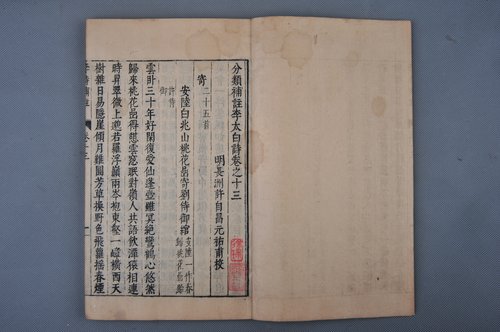 分類補註李太白詩卷之十三
明長洲許自昌玄祐甫校
寄二十五首
安陸白兆山桃花巖寄劉侍御綰
雲臥三十年好閑復愛仙蓬壺雖冥絶鸞鶴心悠然
歸來桃花巖得憩雲窻眠對嶺人共語飲潭猿相連
時昇翠微上邈若羅浮巔兩岑抱東壑一嶂橫西天
樹雜日易隱崖傾月難圓芳草換野色飛蘿搖春煙